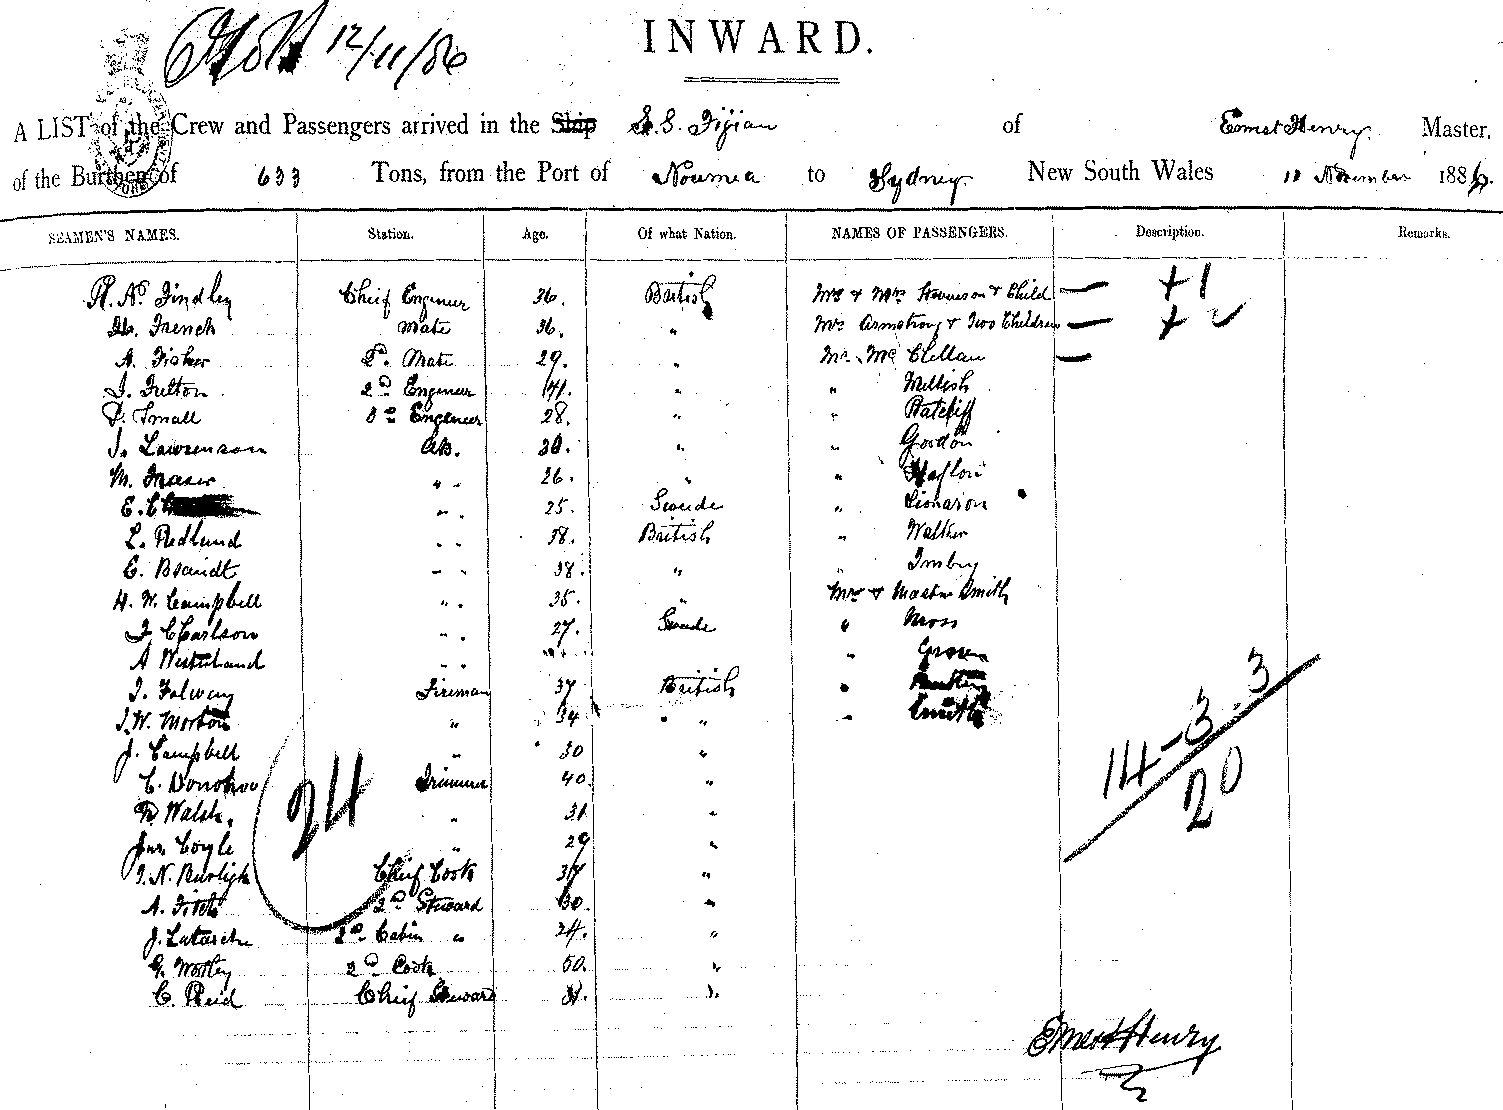 12/11/86
INWARD.
A LIST of the Crew and Passengers arrived in the Ship S.S. Fijian of Ernest Henry Master,
of the Burthen of 633 Tons, from the Port of Noumea to Sydney New South Wales 11 November 1886.
SEAMEN'S NAMES. Station. Age. Of what Nation. NAMES OF PASSENGERS. Description. Remarks.
R. N. Findley Chief Engineer 36. British Mr & Mrs Stevenson & Child — + 1
French Mate 36. " Mrs Armstrong & Two Children — + 2
A. Fisher 2d. Mate 29. " Mr. Mc Clellan —
J. Fulton 2nd Engineer 41. " " Mellish
D. Small 3rd Engineer 28. " " Ratcliff
J. Lawrenson AB. 30. " " Gordon
M. Fraser " " 26. "
E. " " 25. Swede "
L. Redlund " " 38. British " Walker
C. Brandt " " 38. " "
H. W. Campbell " " 35. " Mrs & Master Smith
F. C Carlson " " 27. Swede " Moss
A " " "
J. Falvey Fireman 37 British "
J. W. Morton " 34 " " Smith
J. Campbell " 30 "
C. Donohoe Trimmer 40 "
Walsh. " 31 "
Jas. Coyle " 29 "
J. N. Burligh Chief Cook 37 "
A. Fitch 2nd Steward 30. "
J. 2nd Cabin " 24. "
G. Wolley 2nd Cook 50. "
C. Reid Chief Steward "
24
14-3.3
20
Ernest Henry